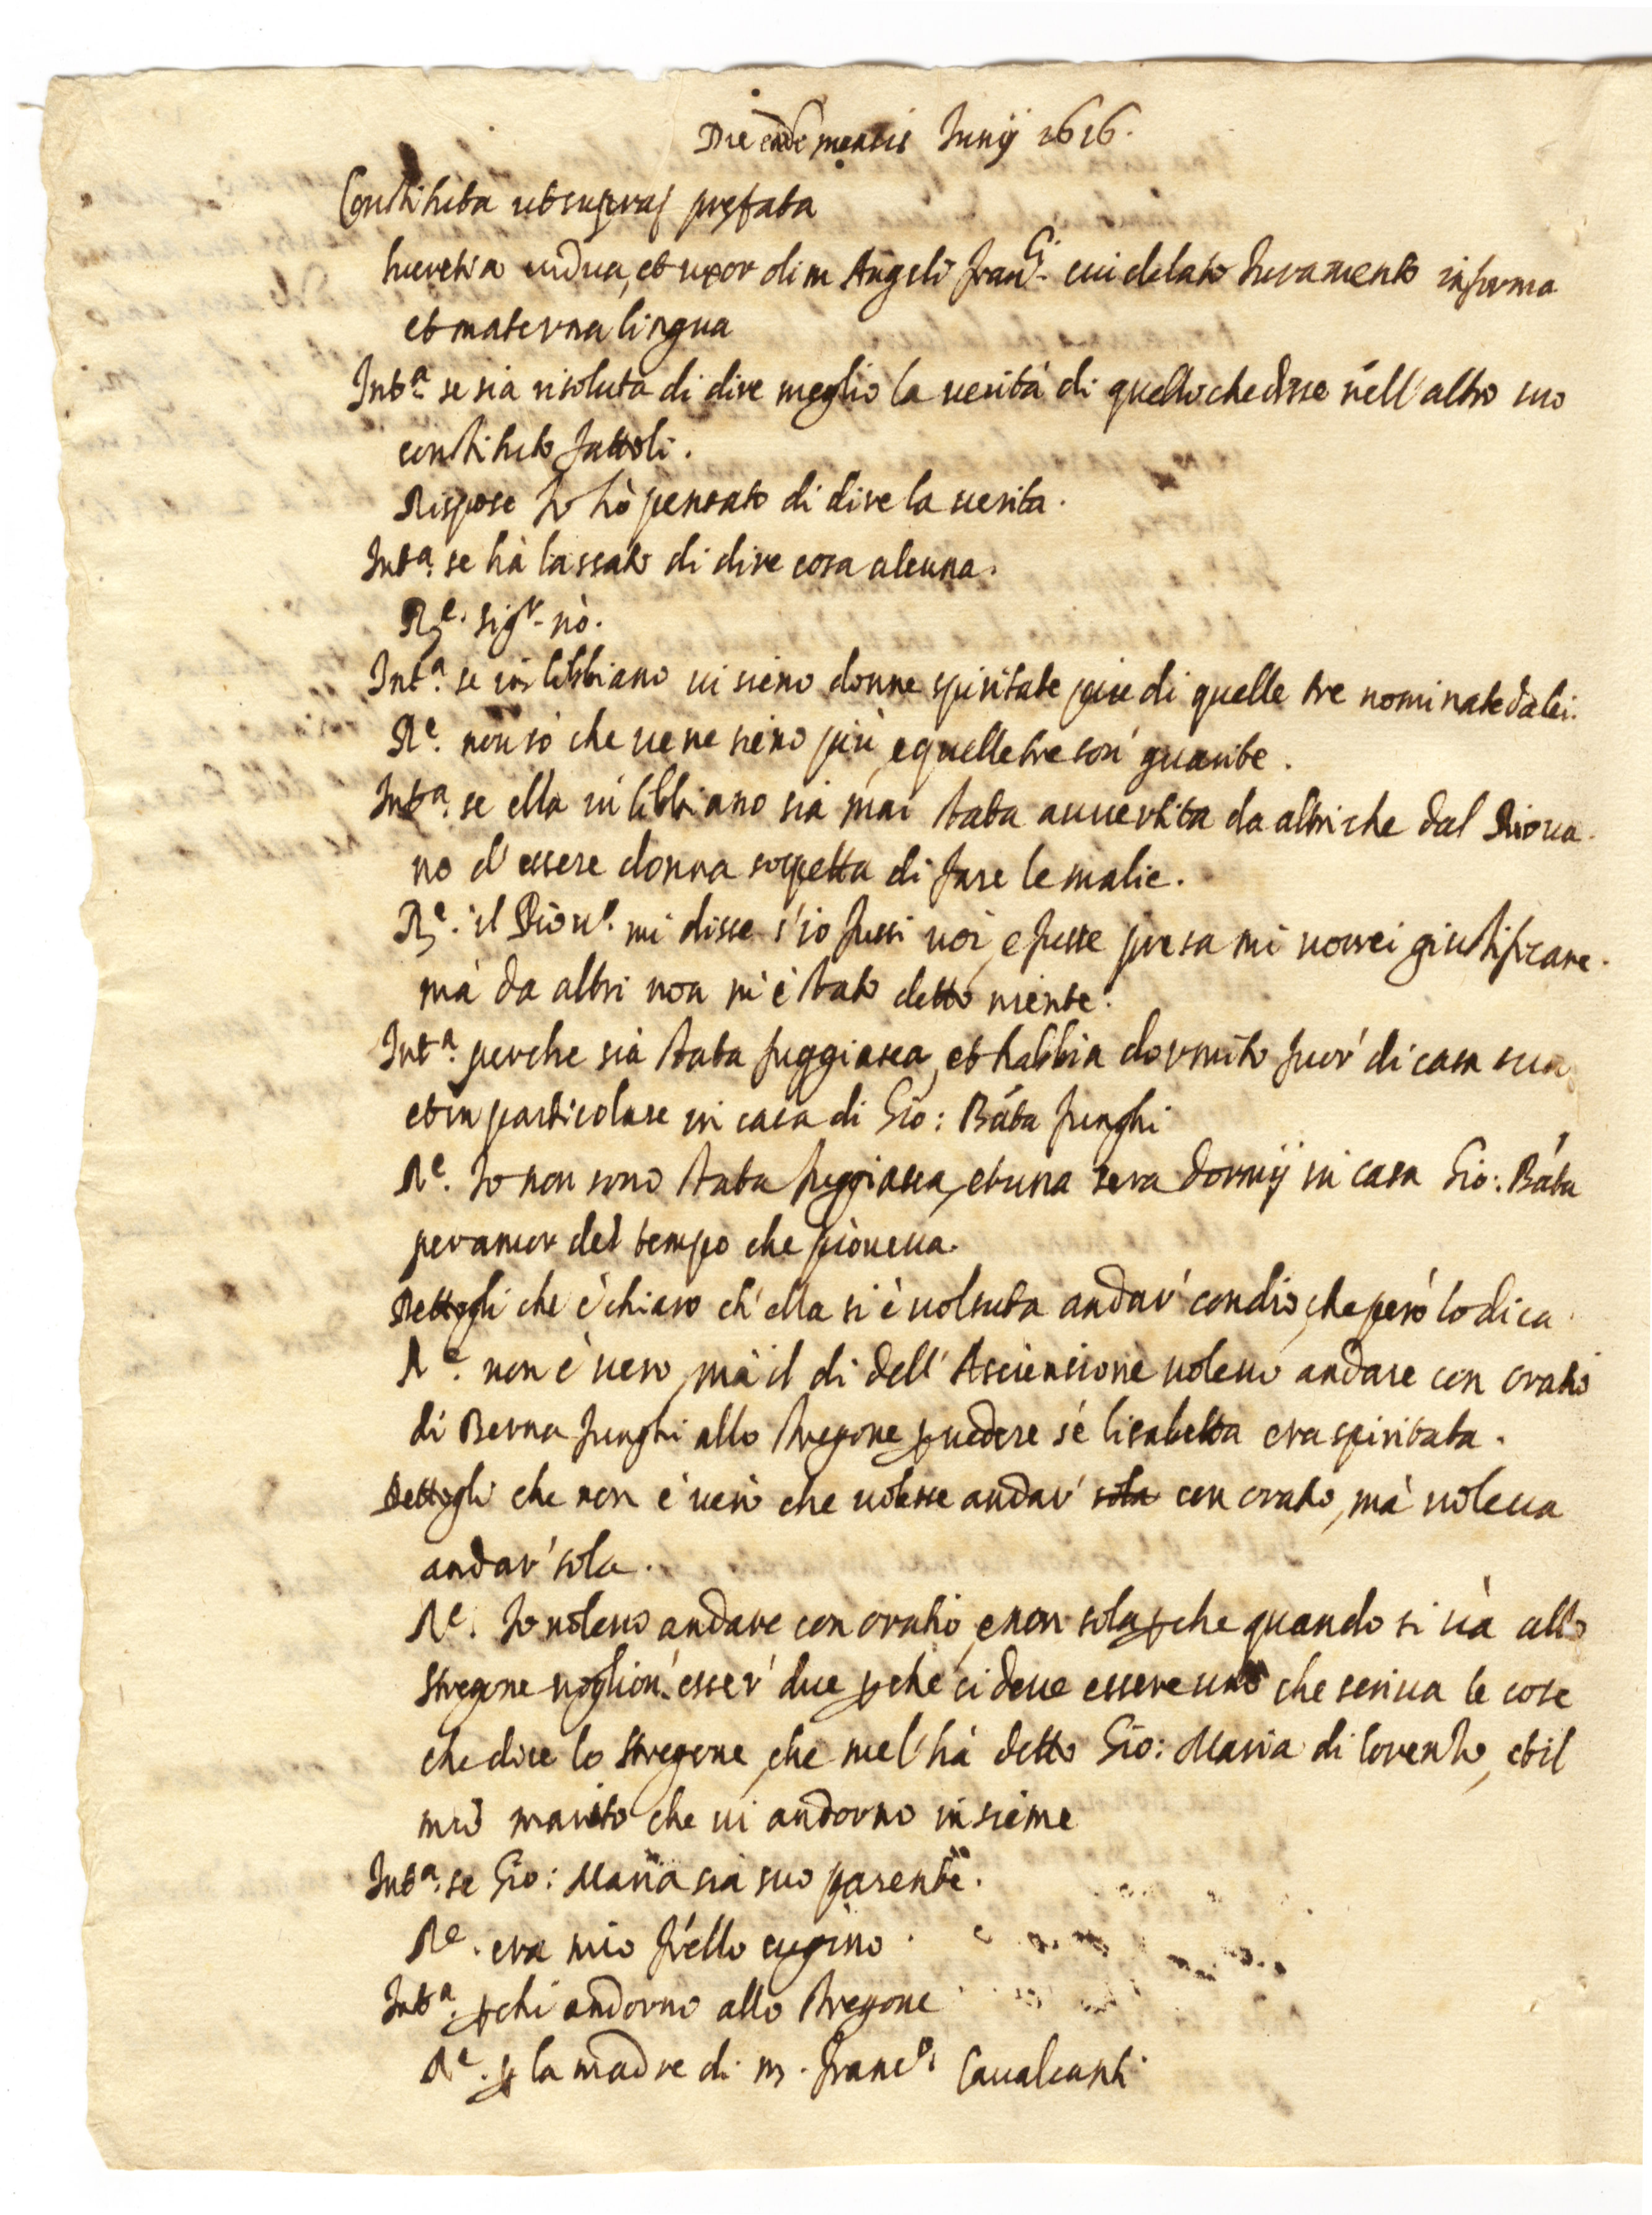 Die eadē mensis Junij 1616.
Constituta ut supra prefata
lucretia vidua, et uxor olim Angeli Franci. cui delato Juramento in forma
et materna lingua
Inta. se sia risoluta di dire meglio la verità di quello che disse nell'altro suo
constituto fattoli.
Rispose Io hò pensato di dire la verita.
Inta. se hà lassato di dire cosa alcuna.
Re. sigr. nò.
Inta. se in libbiano vi sieno donne spiritate piu di quelle tre nominate da lei.
Re. non sò che ve ne sieno più, e quelle tre son' guarite.
Inta. se ella in libbiano sia mai stata avvertita da altri che dal Piova-
no d'essere donna sospetta di fare le malie.
Re. il Piovo. mi disse s'io fussi voi, e fusse presa mi vorrei giustificare.
mà da altri non m'è stato detto niente.
Inta. perche sia stata fuggiasca, et habbia dormito fuor' di casa sua
et in particolare in casa di Gio: Bata funghi
Re. Io non sono stata fuggiasca, et una sera dormij in casa Gio: Bata
per amor del tempo che pioveva.
Dettogli che è chiaro ch'ella si è volsuta andar' con dio, che però lo dica
Re. non è vero, mà il di dell'Asciensione volevo andare con oratio
di Berna funghi allo stregone p vedere sé lisabetta era spiritata.
Dettogli che non è vero che volesse andar' sola con oratio, mà voleva
andar' sola.
Re. Io volevo andare con oratio, e non sola, pche quando si và allo
stregone voglion' esser' due pche ci deve essere uno che scriva le cose
che dice lo stregone, che mel' hà detto Gio: Maria di lorenzo, et il
mio marito che vi andorno insieme
Inta. se Gio: Maria sia suo parente.
Re. era mio frello cugino.
Inta. p chi andorno allo stregone
Re. p la madre di m. Franco. Cavalcanti